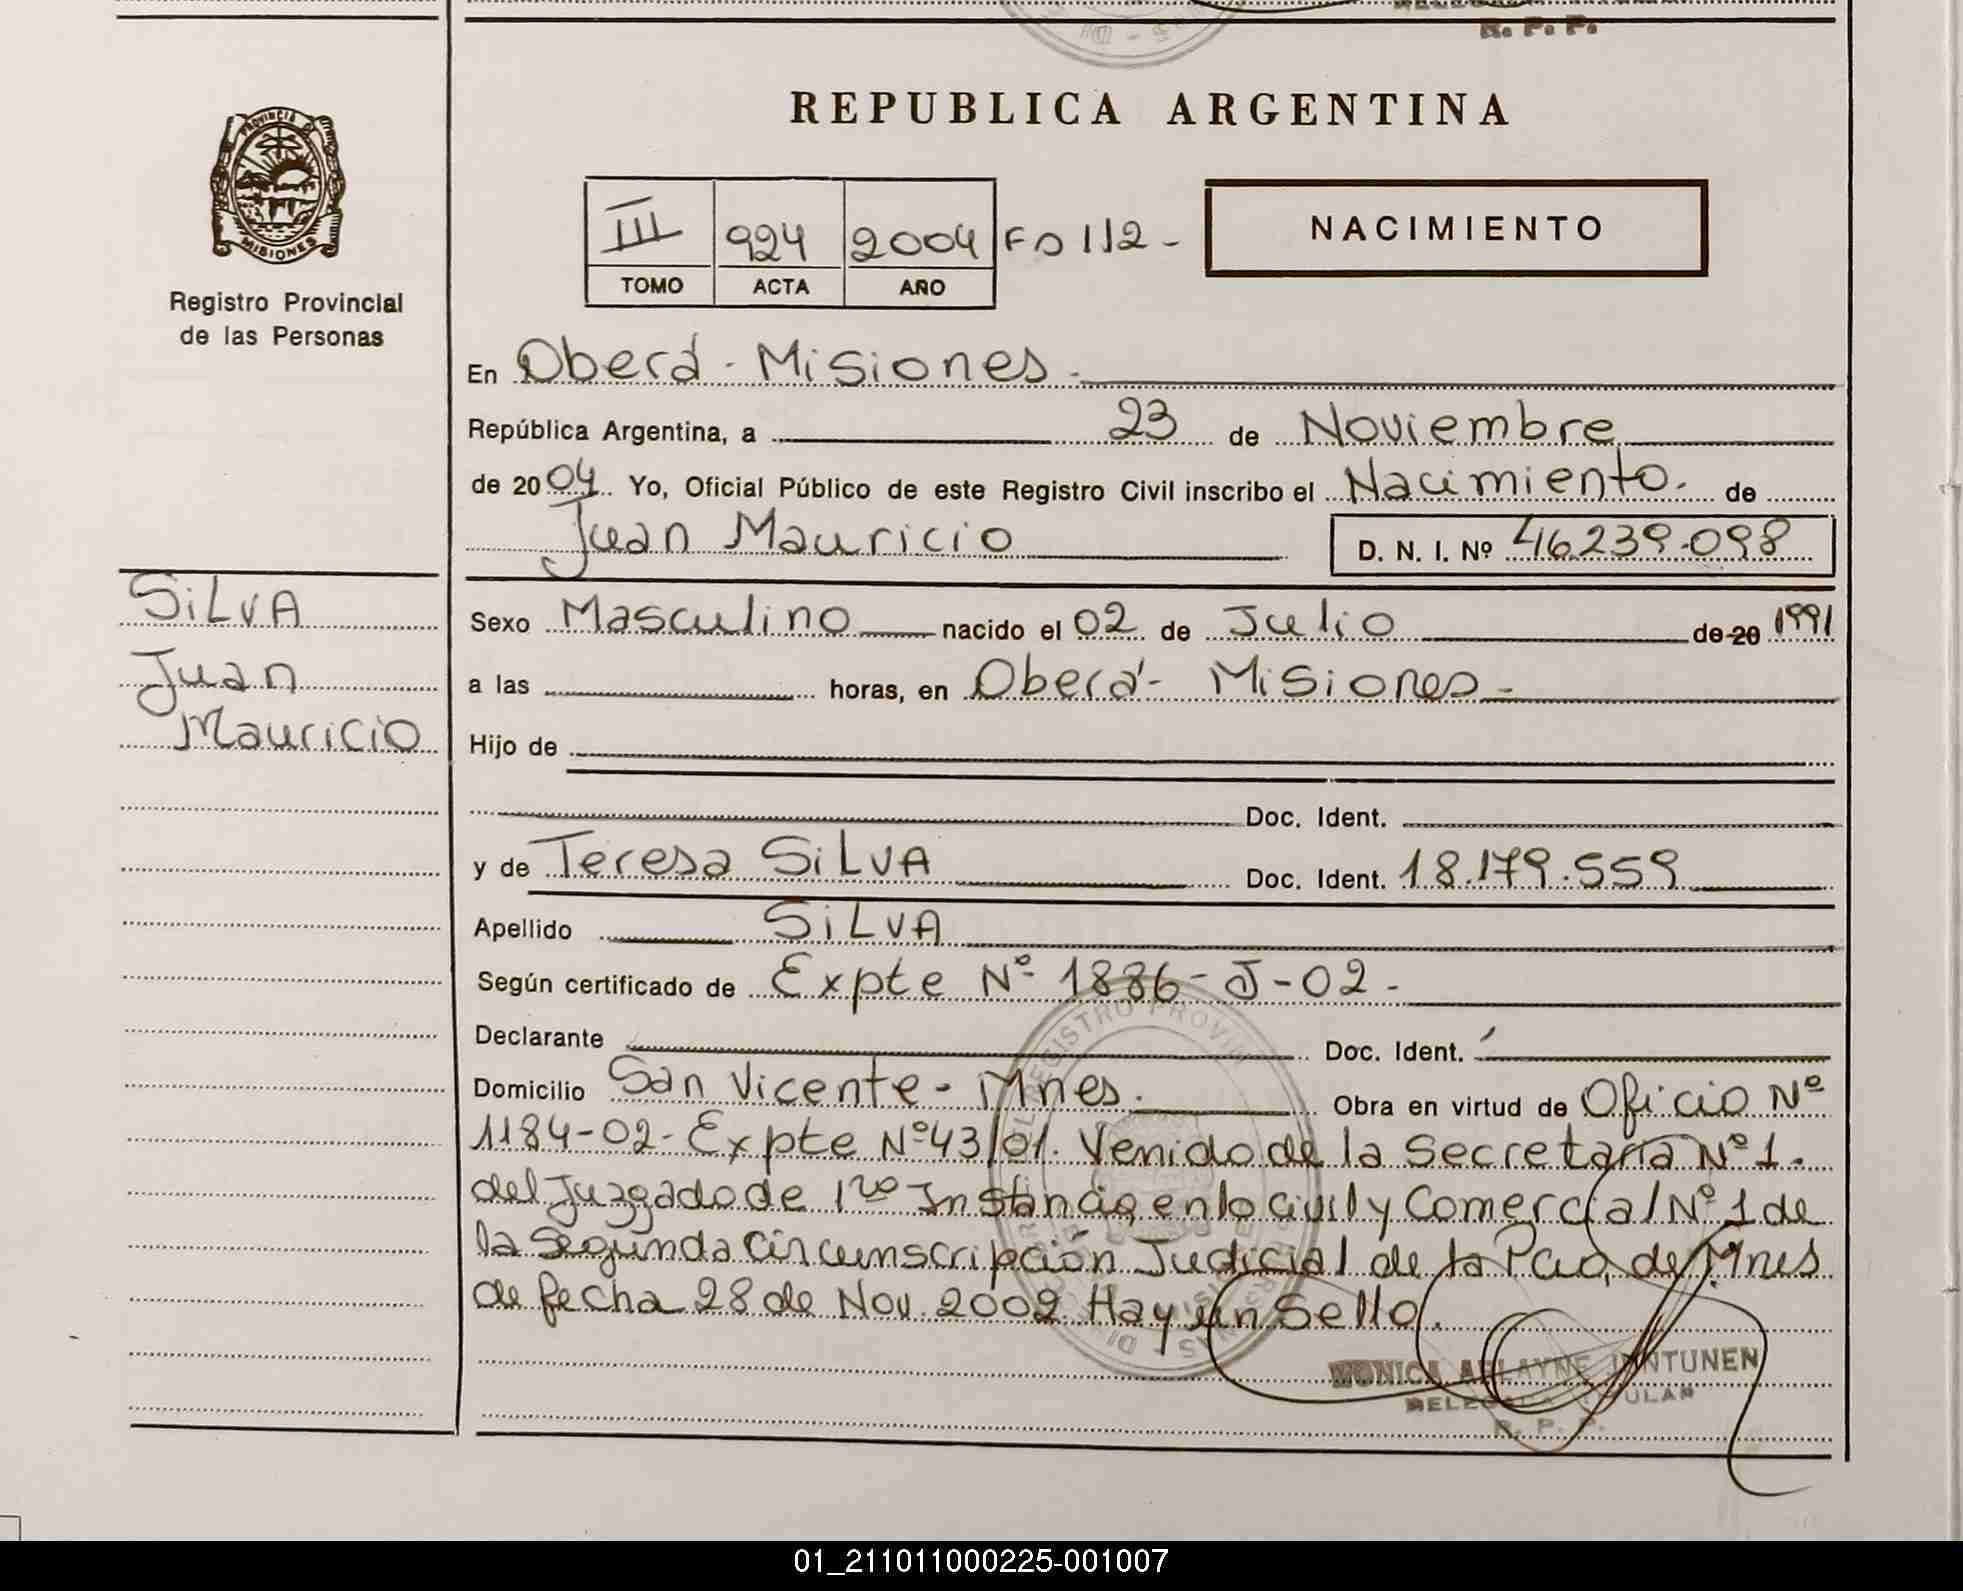 R. P. P.
REPUBLICA ARGENTINA
PROVINCIA DE
MISIONES
Registro Provincial
de las Personas
III 924 2004 Fo 112-
TOMO ACTA AÑO
NACIMIENTO
En Oberá - Misiones.
República Argentina, a 23 de Noviembre
de 2004 Yo, Oficial Público de este Registro Civil inscribo el Nacimiento. de
Juan Mauricio D. N. I. Nº 46.239.098
SiLVA
Juan
Mauricio
Sexo Masculino nacido el 02 de Julio de 20 1991
a las horas, en Oberá - Misiones -
Hijo de
Doc. Ident.
y de Teresa SiLVA Doc. Ident. 18.179.559
Apellido SiLVA
Según certificado de Expte Nº 1886-J-02-
Declarante Doc. Ident.
Domicilio San Vicente - Mnes. Obra en virtud de Oficio Nº
1184-02- Expte Nº 43/01. Venido de la Secretaría Nº 1.
del Juzgado de 1ra Instancia, en lo Civil y Comercial Nº 1 de
la Segunda Circunscripción Judicial de la Pcia, de Mnes
de fecha 28 de Nov. 2002 Hay un Sello.
MONICA
DELEGADA TITULAR
R. P. P.
01_211011000225-001007